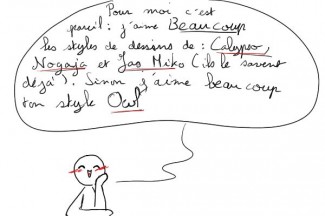 Pour moi c'est
pareil : j'aime Beaucoup
les styles de dessins de : Calypso,
Nogaja et Jao Miko (ils le savent
déjà). Sinon j'aime beaucoup
ton style Owl